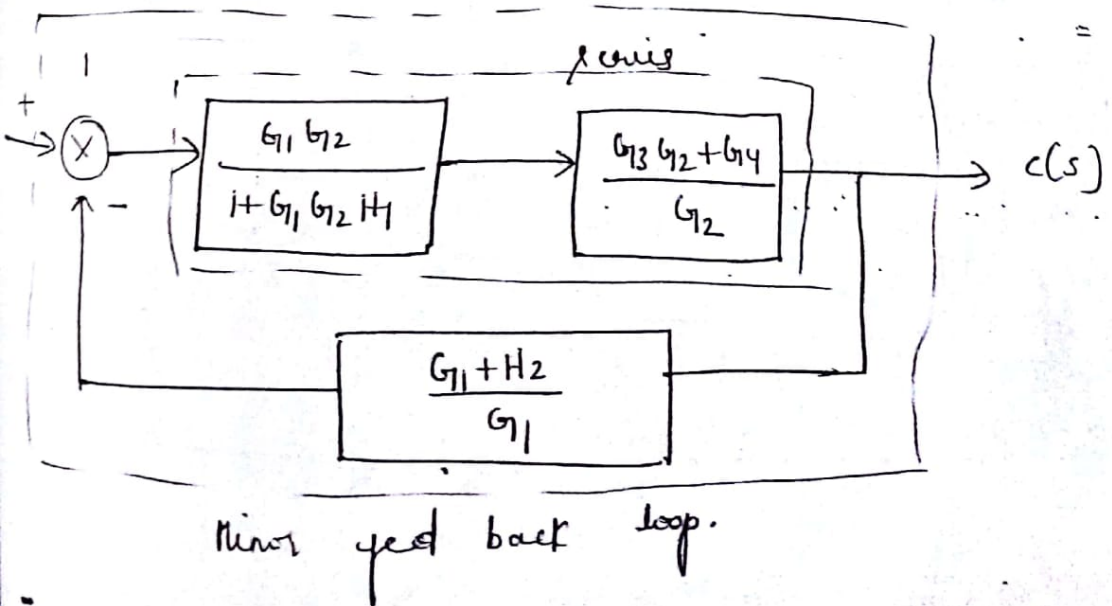 series
+
G1 G2
1+ G1 G2 H1
G3 G2 + G4
G2
C(s)
-
G1 + H2
G1
Minor feed back loop.